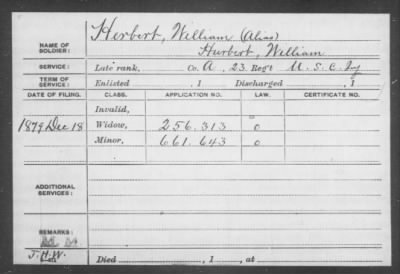 Herbert, William (Alias)
NAME OF SOLDIER: Hurbert, William
SERVICE: Late rank, Co. A, 23. Reg't U. S. C. Iny
TERM OF SERVICE: Enlisted , 1 Discharged , 1
DATE OF FILING. CLASS. APPLICATION NO. LAW. CERTIFICATE NO.
Invalid,
1879 Dec 18 Widow, 256.313 o
Minor, 661.643 o
ADDITIONAL SERVICES:
REMARKS:
J.H.W.
Died , 1 , at